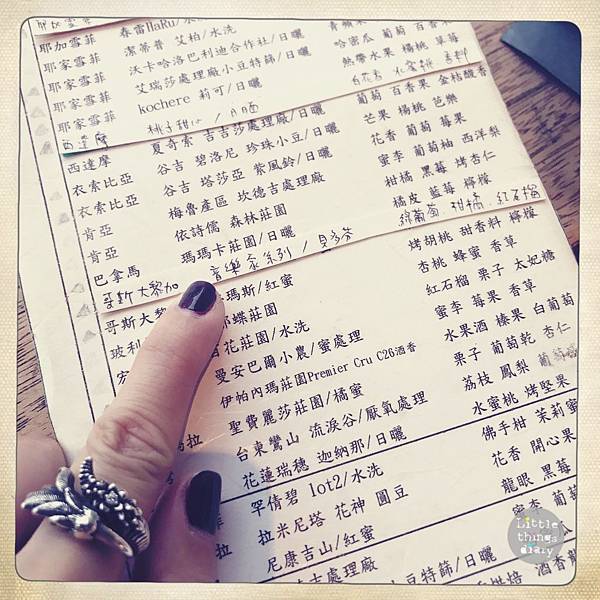 耶加雪菲 春雷HaRu/水洗 青蘋果
耶加雪菲 潔蒂普 艾柏/水洗 哈密瓜 葡萄 百香果
耶家雪菲 沃卡哈洛巴利迪合作社/日曬 熱帶水果 楊桃 草莓
耶家雪菲 艾瑞莎處理廠小豆特篩/日曬
耶家雪菲 kochere 莉可/日曬
西達摩 桃子甜心
西達摩 夏奇索 吉吉莎處理廠/日曬 葡萄 百香果 金桔酸香
衣索比亞 谷吉 碧洛尼 珍珠小豆/日曬 芒果 楊桃 芭樂
衣索比亞 谷吉 塔莎亞 紫風鈴/日曬 花香 葡萄 莓果
肯亞 梅魯產區 坎德吉處理廠 蜜李 葡萄柚 西洋梨
肯亞 依詩儒 森林莊園 柑橘 黑莓 烤杏仁
巴拿馬 瑪瑪卡莊園/日曬 橘皮 藍莓 檸檬
哥斯大黎加 音樂家系列/貝多芬 綠葡萄 甜橘 紅石榴
哥斯大黎 瑪斯/紅蜜 烤胡桃 甜香料 檸檬
玻利 蝶莊園 杏桃 蜂蜜 香草
花莊園/水洗 紅石榴 栗子 太妃糖
曼安巴爾小農/蜜處理 蜜李 莓果 香草
伊帕內瑪莊園Premier Cru C26酒香 水果酒 榛果 白葡萄
聖費麗莎莊園/橘蜜 栗子 葡萄乾 杏仁
拉 台東鸞山 流淚谷/厭氧處理 荔枝 鳳梨 葡萄
花蓮瑞穗 迦納那/日曬 水蜜桃 烤堅果
罕倩碧 lot2/水洗 佛手柑 茉莉 蜜
拉 拉米尼塔 花神 圓豆 花香 開心果
尼康吉山/紅蜜 龍眼 黑莓
處理廠 蜜李 葡萄
豆特篩/日曬
Little things diary